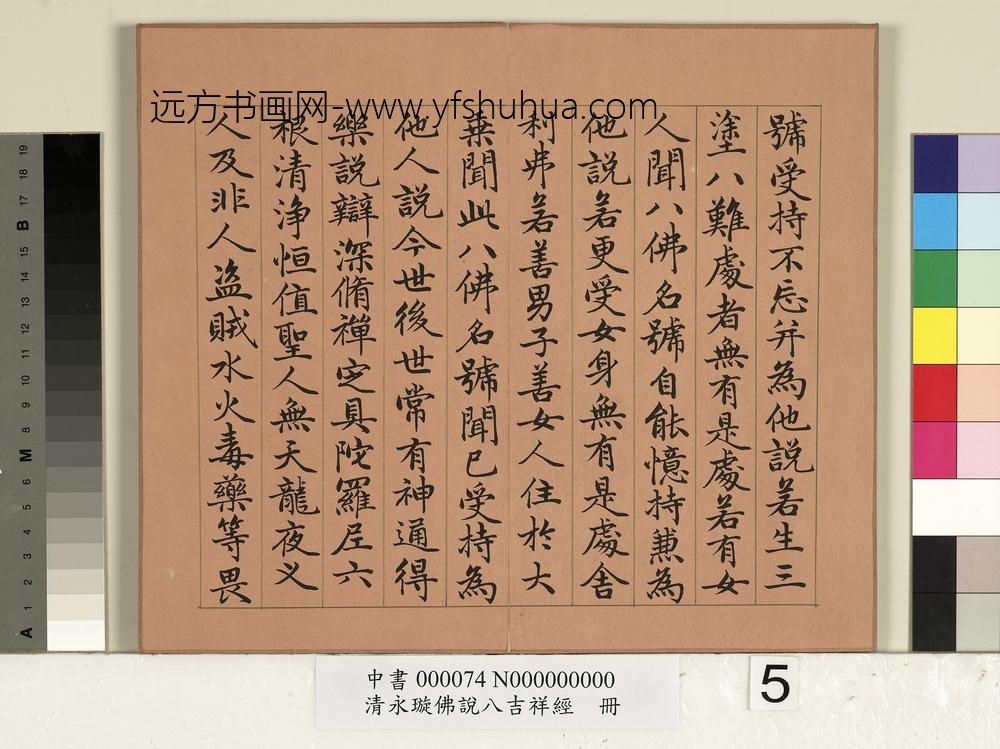 远方书画网-www.yfshuhua.com
號受持不忘并為他說若生三
塗八難處者無有是處若有女
人聞八佛名號自能憶持兼為
他說若更受女身無有是處舍
利弗若善男子善女人住於大
乗聞此八佛名號聞已受持為
他人說今世後世常有神通得
樂說辯深脩禪定具陀羅尼六
根清淨恒值聖人無天龍夜乂
人及非人盜賊水火毒藥等畏
中書 000074 N000000000
清永璇佛說八吉祥經 冊
5
A 1 2 3 4 5 6 M 8 9 10 11 12 13 14 15 B 17 18 19